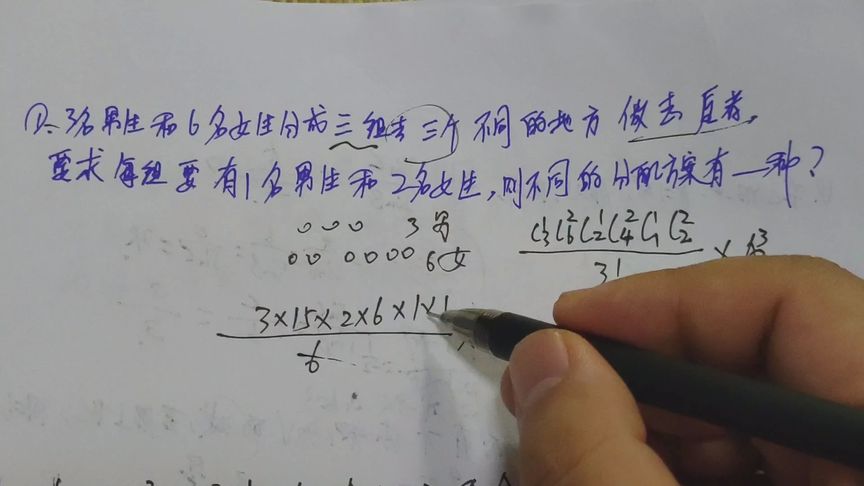 ①、3名男生和6名女生分成三组去三个不同的地方做志愿者,
要求每组要有1名男生和2名女生,则不同的分配方案有一种?
000 3男
00 0000 6女
C₃¹C₆²C₂¹C₄²C₁¹C₂² / 3! × A₃³
3×15×2×6×1×1 / 6